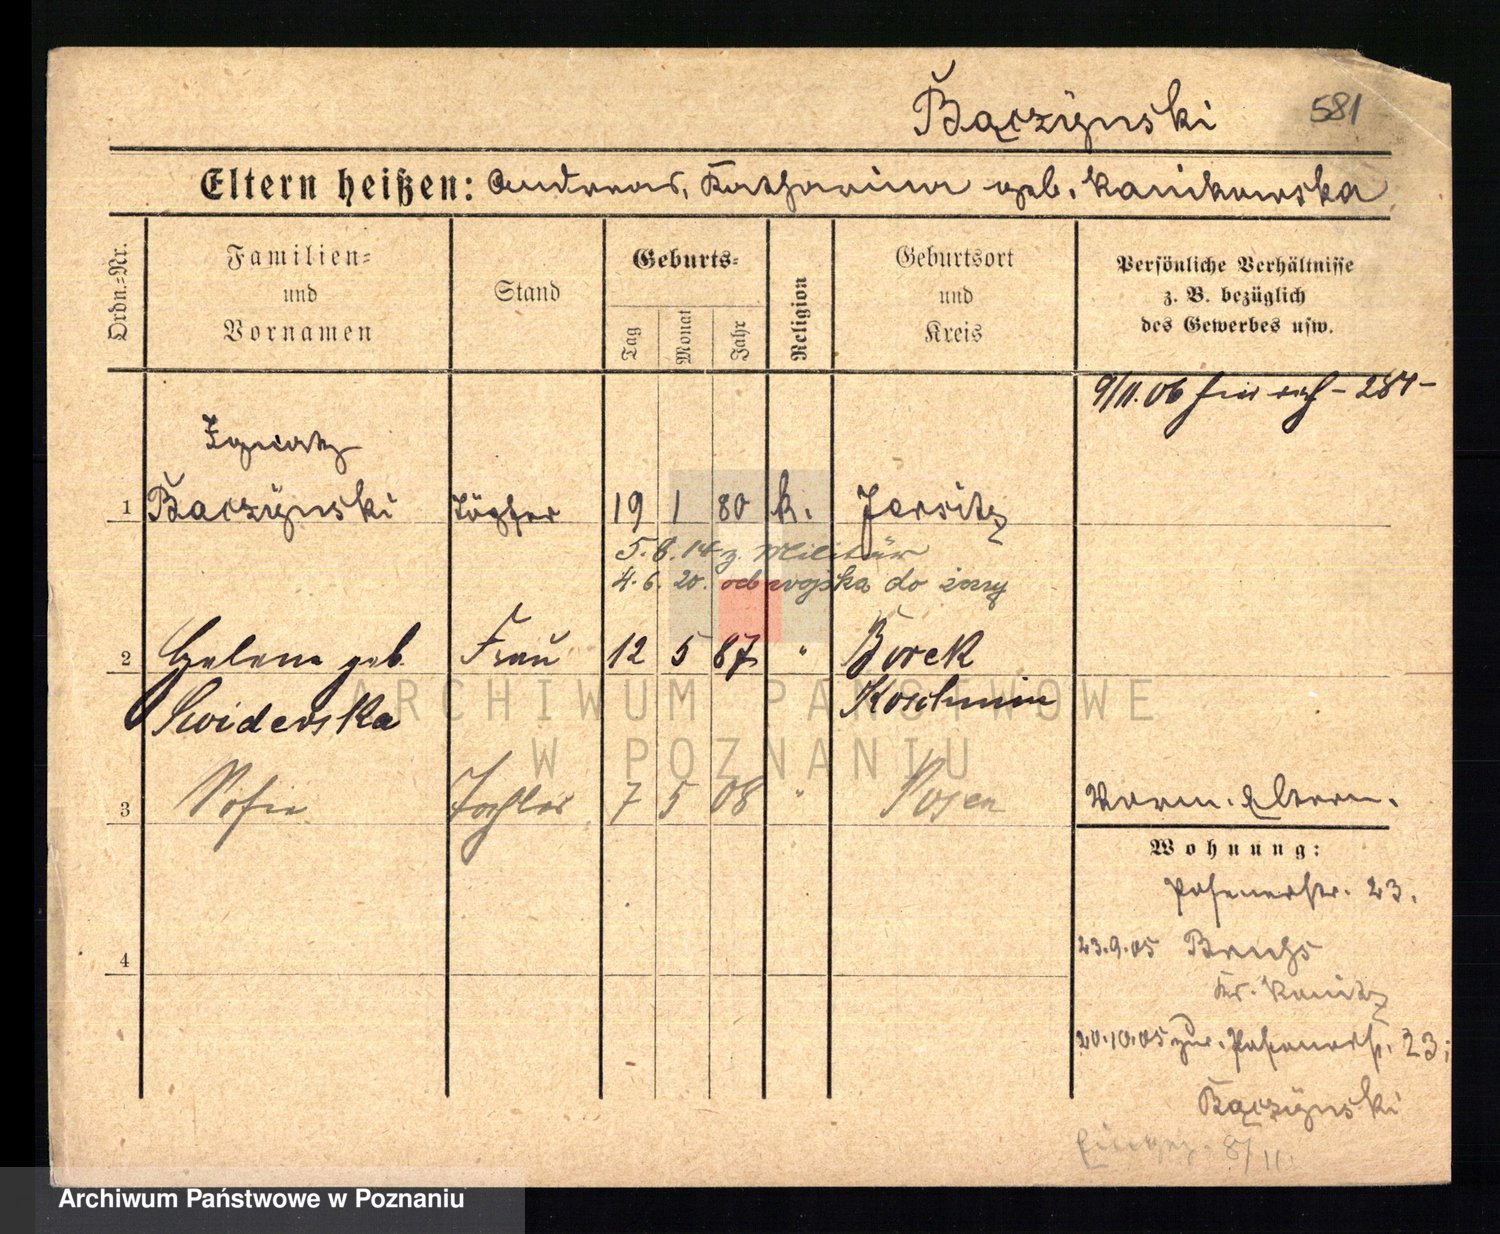 Bączÿnski 581
Eltern heißen: Andreas, Katharina geb. Kanikowska
Ordn.-Nr.
Familien-
und
Vornamen
Stand
Geburts-
Tag
Monat
Jahr
Religion
Geburtsort
und
Kreis
Persönliche Verhältnisse
z. B. bezüglich
des Gewerbes usw.
9/11.06 - 284 -
Ignatz
1 Baczÿnski 19 1 80 k. Jersitz
5.8.14 z. Militär
4.6.20. od wojska do żony
2 Helene geb. Frau 12 5 87 " Borek
Swiderska Koschmin
3 Sofie Tochter 7 5 08 " Posen
Vorm. Eltern.
Wohnung:
Posenerstr. 23.
23.9.05
4
20.10.05 zur. Posenerstr. 23;
Bączÿnski
8/11.
ARCHIWUM PAŃSTWOWE
W POZNANIU
Archiwum Państwowe w Poznaniu